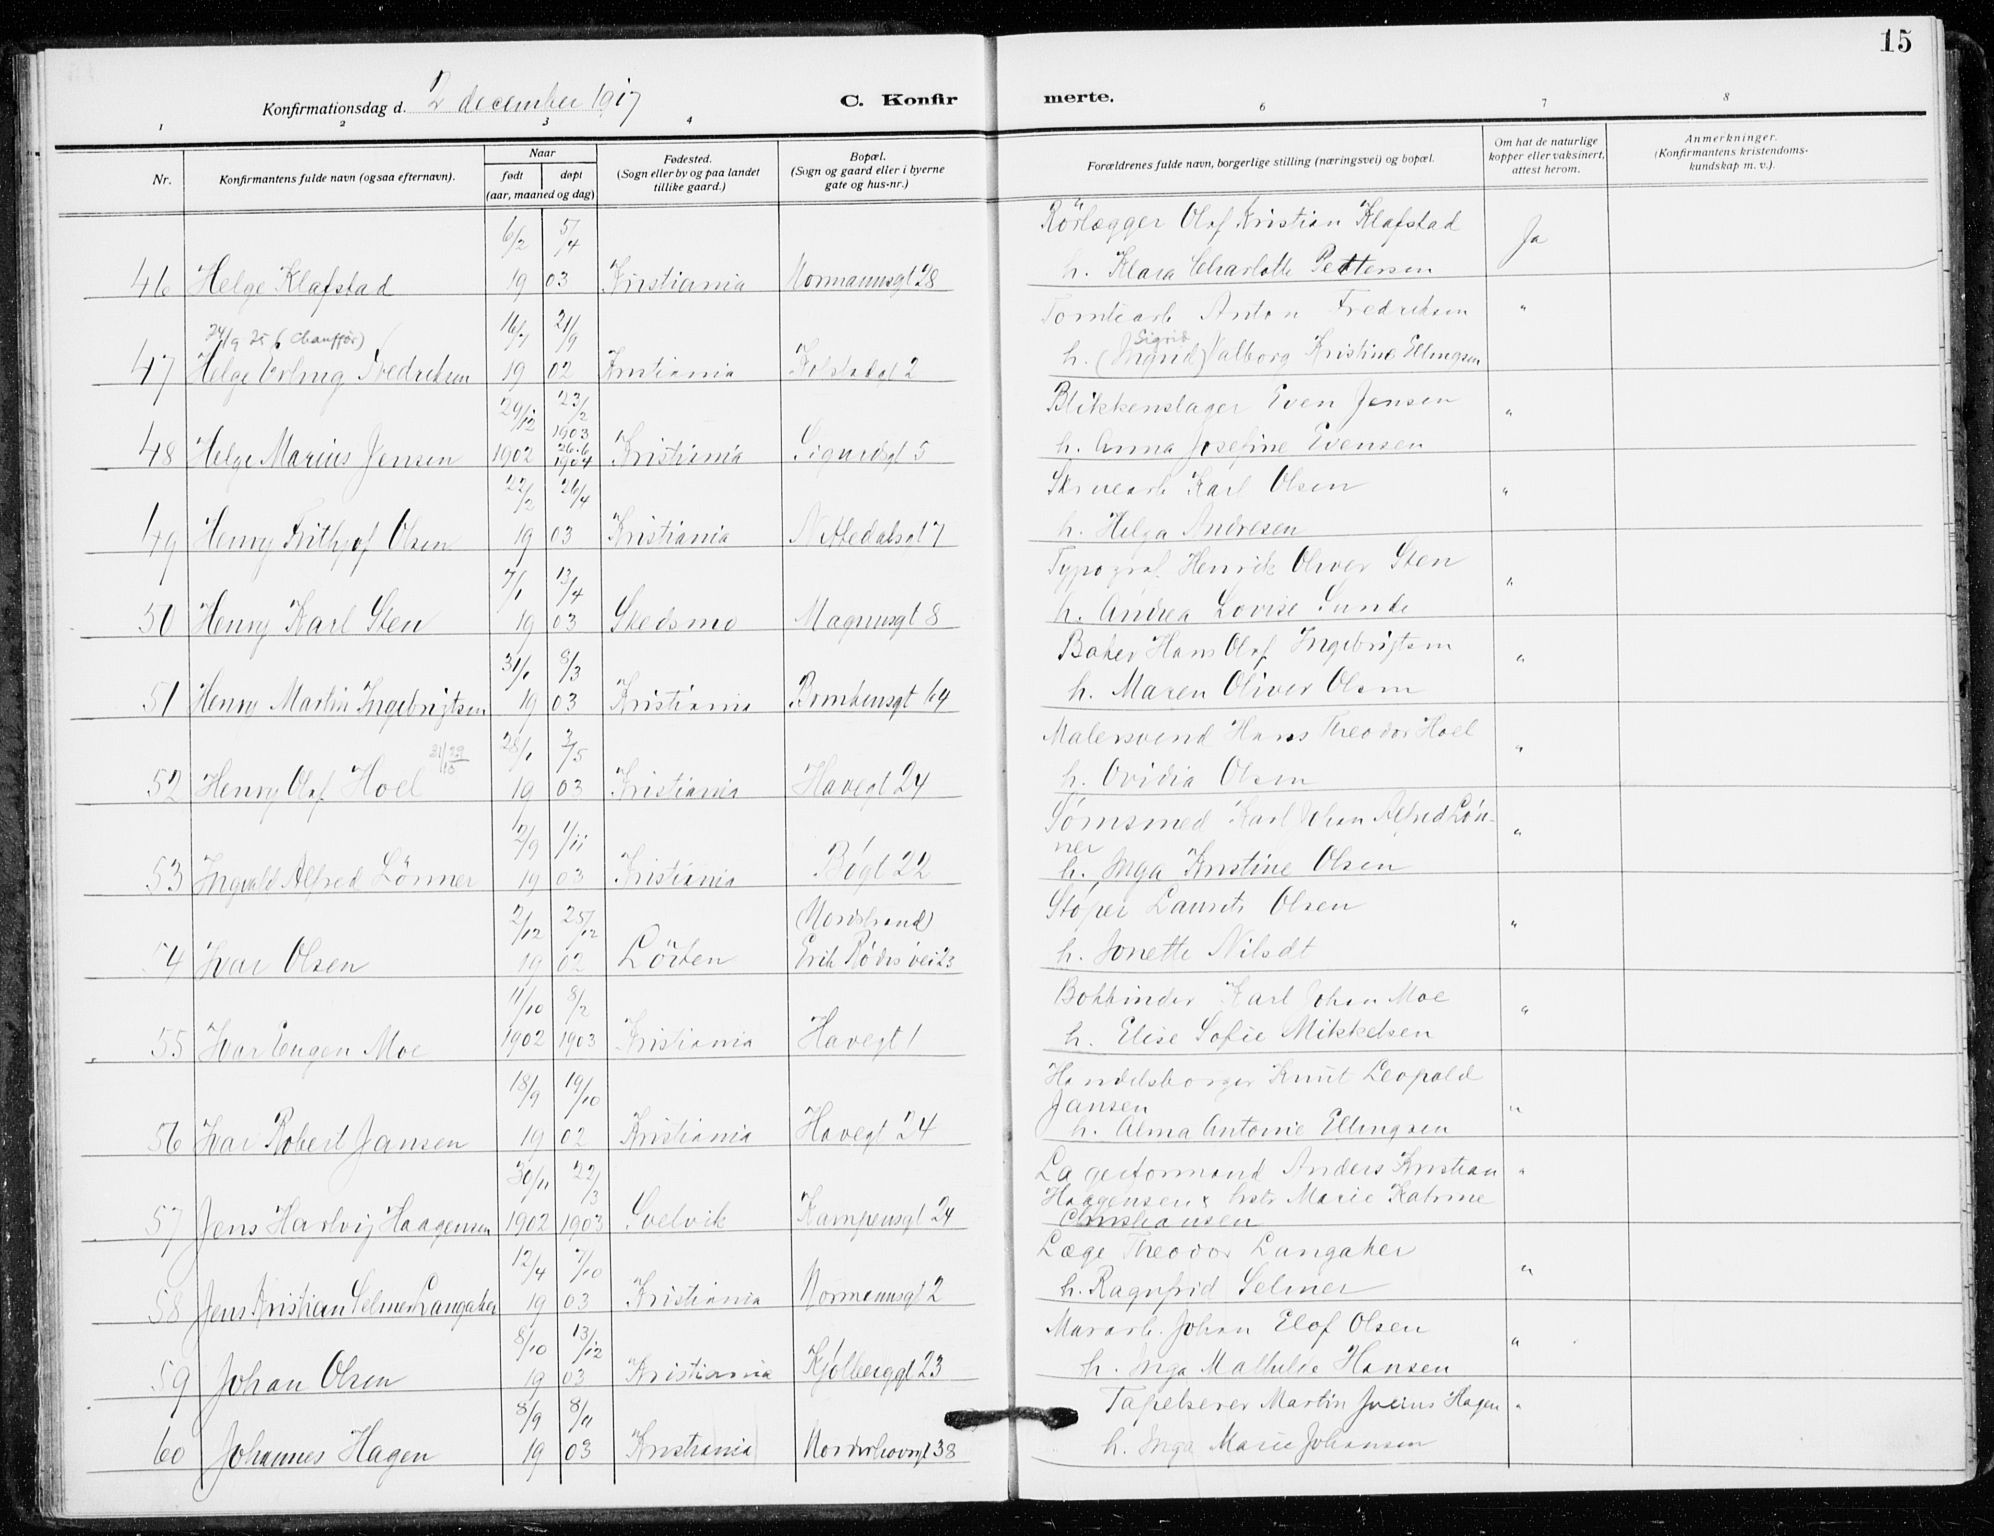 15
Konfirmationsdag d. 2 december 1917 C. Konfir merte.
1 2 3 4 6 7 8
Nr.
Konfirmantens fulde navn (ogsaa efternavn).
Naar
født døpt
(aar, maaned og dag)
Fødested.
(Sogn eller by og paa landet
tillike gaard.)
Bopæl.
(Sogn og gaard eller i byerne
gate og hus-nr.)
Forældrenes fulde navn, borgerlige stilling (næringsvei) og bopæl.
Om hat de naturlige
kopper eller vaksinert,
attest herom.
Anmerkninger.
(Konfirmantens kristendoms-
kundskap m. v.).
6/2 5/4 Rörlægger Olaf Kristian Klafstad Ja
46 Helge Klafstad 19 03 Kristiania Normannsgt 28 h. Klara Charlotte Pettersen
16/7 21/9 Tomtearb Anton Fredriksen "
24/9 25 (Chauffør) Sigrid
47 Helge Erling Fredriksen 19 02 Kristiania h. (Ingrid) Valborg Kristine Ellingsen
29/12 23/2 Blikkenslager Even Jensen "
1903
48 Helge Marius Jensen 1902 26.6 1904 Kristiania Sigurdsgt 5 h. Anna Josefine Evensen
22/2 26/4 Skruearb Karl Olsen "
49 Henry Frithjof Olsen 19 03 Kristiania Nittedalsgt 7 h. Helga Andresen
7/1 13/4 Typograf Henrik Oliver Sten "
50 Henry Karl Sten 19 03 Skedsmo Magnusgt 8 h. Andrea Lovise Sunde
31/1 8/3 Baker Hans Olaf Ingebrigtsen "
51 Henry Martin Ingebrigtsen 19 03 Kristiania 64 h. Maren Oliver Olsen
28/1 3/5 Malersvend Hans Theodor Hoel "
52 Henry Olaf Hoel 19 03 Kristiania Havegt 24 h. Ovidia Olsen
2/9 1/11 Sömsmed Karl Johan Alfred Lön-
ner "
53 Ingvald Alfred Lönner 19 03 Kristiania Bögt 22 h. Inga Kristine Olsen
2/12 25/12 (Nordstrand) Støper Laurits Olsen "
54 Ivar Olsen 19 02 Löiten Erik Rödes vei 23 h. Jonette Nilsdt
11/10 8/2 Bokbinder Karl Johan Moe "
55 Ivar Eugen Moe 1902 1903 Kristiania Havegt 1 h. Elise Sofie Mikkelsen
18/9 19/10 Handelsborger Knut Leopold
Jansen "
56 Ivar Robert Jansen 19 02 Kristiania Havegt 24 h. Alma Antonie Ellingsen
30/11 22/3 Lagerformand Anders Kristian "
Haagensen x hstr Marie Katrine
57 Jens Hartvig Haagensen 1902 1903 Svelvik Kampensgt 24 Christiansen
12/4 7/10 Læge Theodor Langaker "
58 Jens Kristian Selmer Langaker 19 03 Kristiania Normannsgt 2 h. Ragnfrid Selmer
8/10 13/12 Murarb. Johan Elof Olsen "
59 Johan Olsen 19 03 Kristiania Kjölberggt 23 h. Inga Mathilde Hansen
8/9 8/11 Tapetserer Martin Julius Hagen "
60 Johannes Hagen 19 03 Kristiania Norderhovsgt 38 h. Inga Marie Johansen